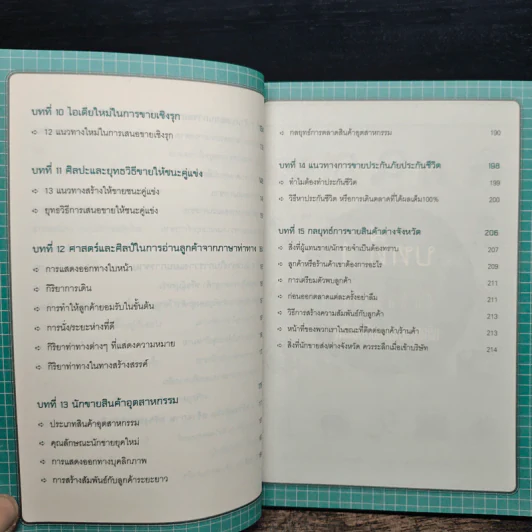 บทที่ 10 ไอเดียใหม่ในการขายเชิงรุก
➪ 12 แนวทางใหม่ในการเสนอขายเชิงรุก
บทที่ 11 ศิลปะและยุทธวิธีขายให้ชนะคู่แข่ง
➪ 13 แนวทางสร้างให้ขายชนะคู่แข่ง
➪ ยุทธวิธีการเสนอขายให้ชนะคู่แข่ง
บทที่ 12 ศาสตร์และศิลป์ในการอ่านลูกค้าจากภาษาท่าทาง
➪ การแสดงออกทางใบหน้า
➪ กิริยาการเดิน
➪ การทำให้ลูกค้ายอมรับในขั้นต้น
➪ การนั่ง/ระยะห่างที่ดี
➪ กิริยาท่าทางต่างๆ ที่แสดงความหมาย
➪ กิริยาท่าทางในทางสร้างสรรค์
บทที่ 13 นักขายสินค้าอุตสาหกรรม
➪ ประเภทสินค้าอุตสาหกรรม
➪ คุณลักษณะนักขายยุคใหม่
➪ การแสดงออกทางบุคลิกภาพ
➪ การสร้างสัมพันธ์กับลูกค้าระยะยาว
➪ กลยุทธ์การตลาดสินค้าอุตสาหกรรม 190
บทที่ 14 แนวทางการขายประกันภัยประกันชีวิต 198
➪ ทำไมต้องทำประกันชีวิต 199
➪ วิธีหาประกันชีวิต หรือการเดินตลาดที่ได้ผลเต็ม100% 200
บทที่ 15 กลยุทธ์การขายสินค้าต่างจังหวัด 206
➪ สิ่งที่ผู้แทนขาย/นักขายจำเป็นต้องทราบ 207
➪ ลูกค้าหรือร้านค้าเขาต้องการอะไร 209
➪ การเตรียมตัวพบลูกค้า 211
➪ ก่อนออกตลาดแต่ละครั้งอย่าลืม 211
➪ วิธีการสร้างความสัมพันธ์กับลูกค้า 213
➪ หน้าที่ของพวกเราในขณะที่ติดต่อลูกค้า/ร้านค้า 213
➪ สิ่งที่นักขายส่ง/ต่างจังหวัด ควรระลึกเมื่อเข้าบริษัท 214